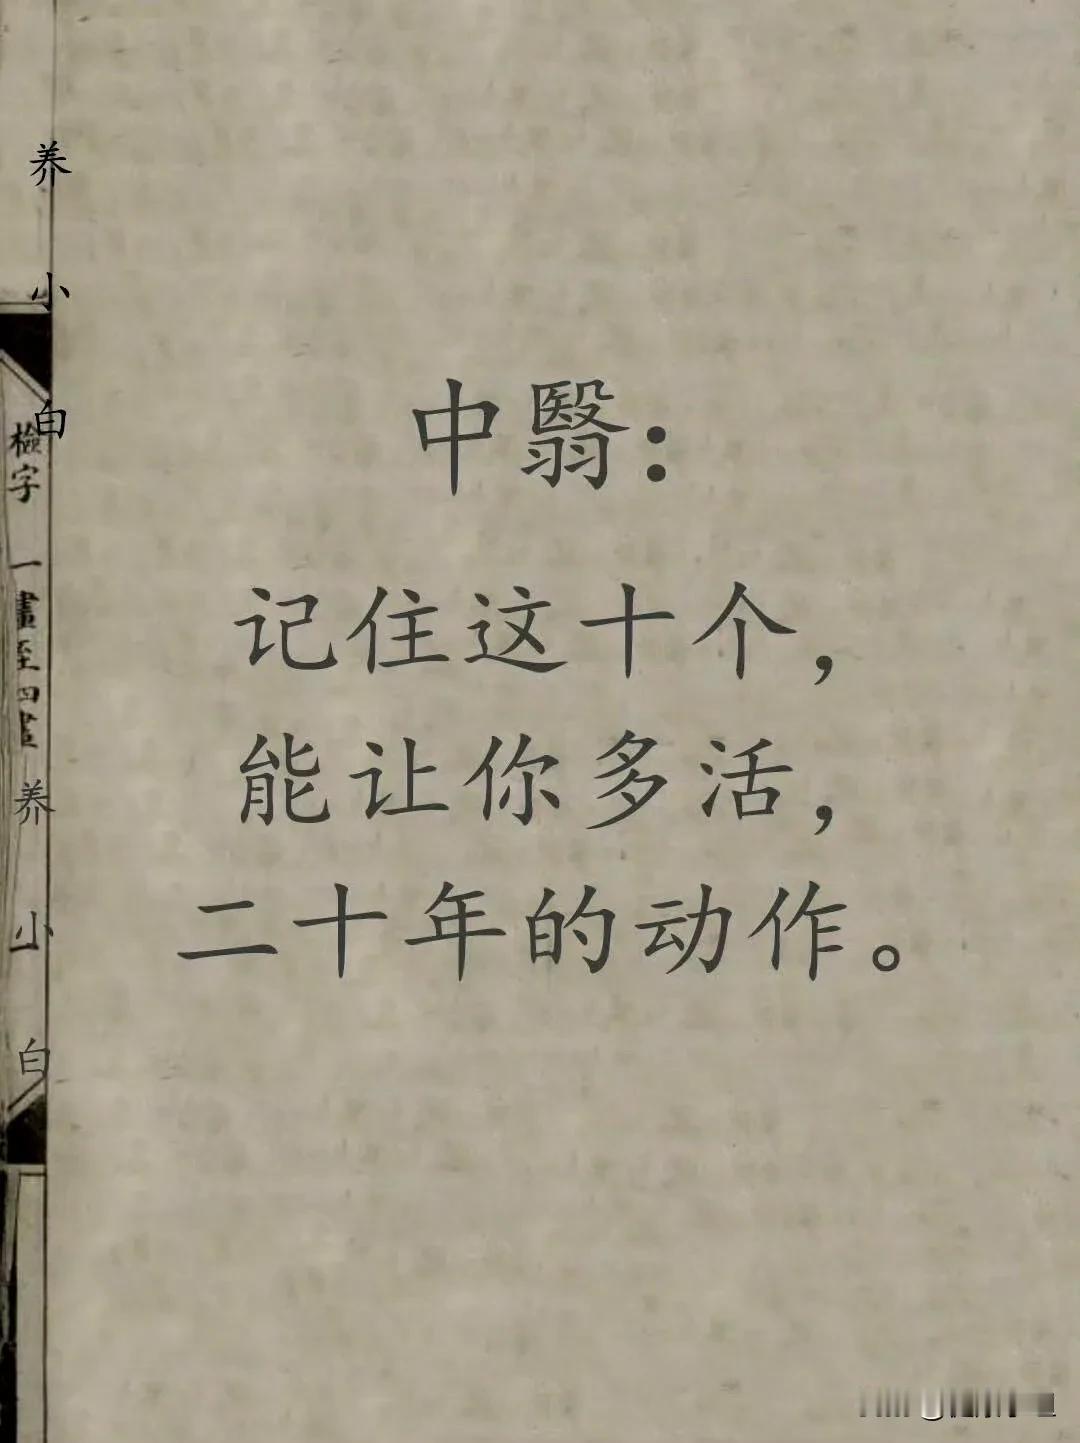 中翳：
记住这十个，
能让你多活，
二十年的动作。
养小白
檢字 一畫至四畫
养小白